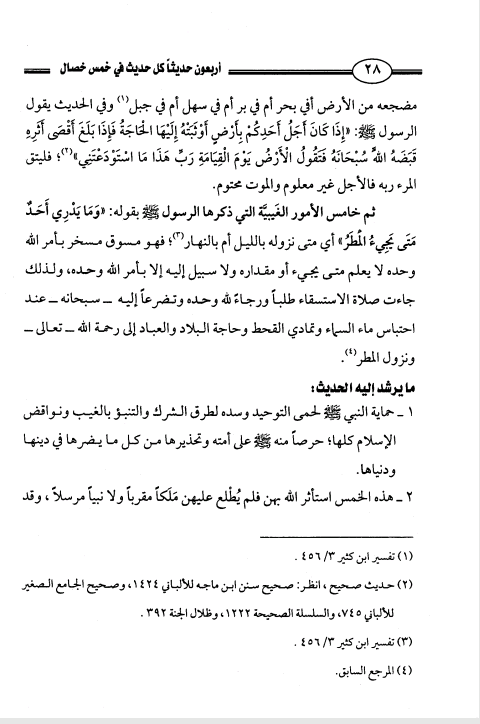 ٢٨ أربعون حديثاً كل حديث في خمس خصال
مضجعه من الأرض أفي بحر أم في بر أم في سهل أم في جبل(١) وفي الحديث يقول
الرسول ﷺ: «إِذَا كَانَ أَجَلُ أَحَدِكُمْ بِأَرْضٍ أَوْثَبَتْهُ إِلَيْهَا الْحَاجَةُ فَإِذَا بَلَغَ أَقْصَى أَثَرِهِ
قَبَضَهُ اللهُ سُبْحَانَهُ فَتَقُولُ الْأَرْضُ يَوْمَ الْقِيَامَةِ رَبِّ هَذَا مَا اسْتَوْدَعْتَنِي»(٢)؛ فليتق
المرء ربه فالأجل غير معلوم والموت محتوم.
ثم خامس الأمور الغيبيَّة التي ذكرها الرسول ﷺ بقوله: «وَمَا يَدْرِي أَحَدٌ
مَتَى يَجِيءُ الْمَطَرُ» أي متى نزوله بالليل أم بالنهار(٣)؛ فهو مسوق مسخر بأمر الله
وحده لا يعلم متى يجيء أو مقداره ولا سبيل إليه إلا بأمر الله وحده، ولذلك
جاءت صلاة الاستسقاء طلباً ورجاءً لله وحده وتضرعاً إليه ــ سبحانه ــ عند
احتباس ماء السماء وتمادي القحط وحاجة البلاد والعباد إلى رحمة الله ــ تعالى ــ
ونزول المطر(٤).
ما يرشد إليه الحديث:
١ ــ حماية النبي ﷺ لحمى التوحيد وسده لطرق الشرك والتنبؤ بالغيب ونواقض
الإسلام كلها؛ حرصاً منه ﷺ على أمته وتحذيرها من كل ما يضرها في دينها
ودنياها.
٢ ــ هذه الخمس استأثر الله بهن فلم يُطْلع عليهن مَلَكاً مقرباً ولا نبياً مرسلاً، وقد
(١) تفسير ابن كثير ٣/ ٤٥٦ .
(٢) حديث صحيح ، انظر: صحيح سنن ابن ماجه للألباني ١٤٢٤، وصحيح الجامع الصغير
للألباني ٧٤٥، والسلسلة الصحيحة ١٢٢٢، وظلال الجنة ٣٩٢ .
(٣) تفسير ابن كثير ٣/ ٤٥٦ .
(٤) المرجع السابق.